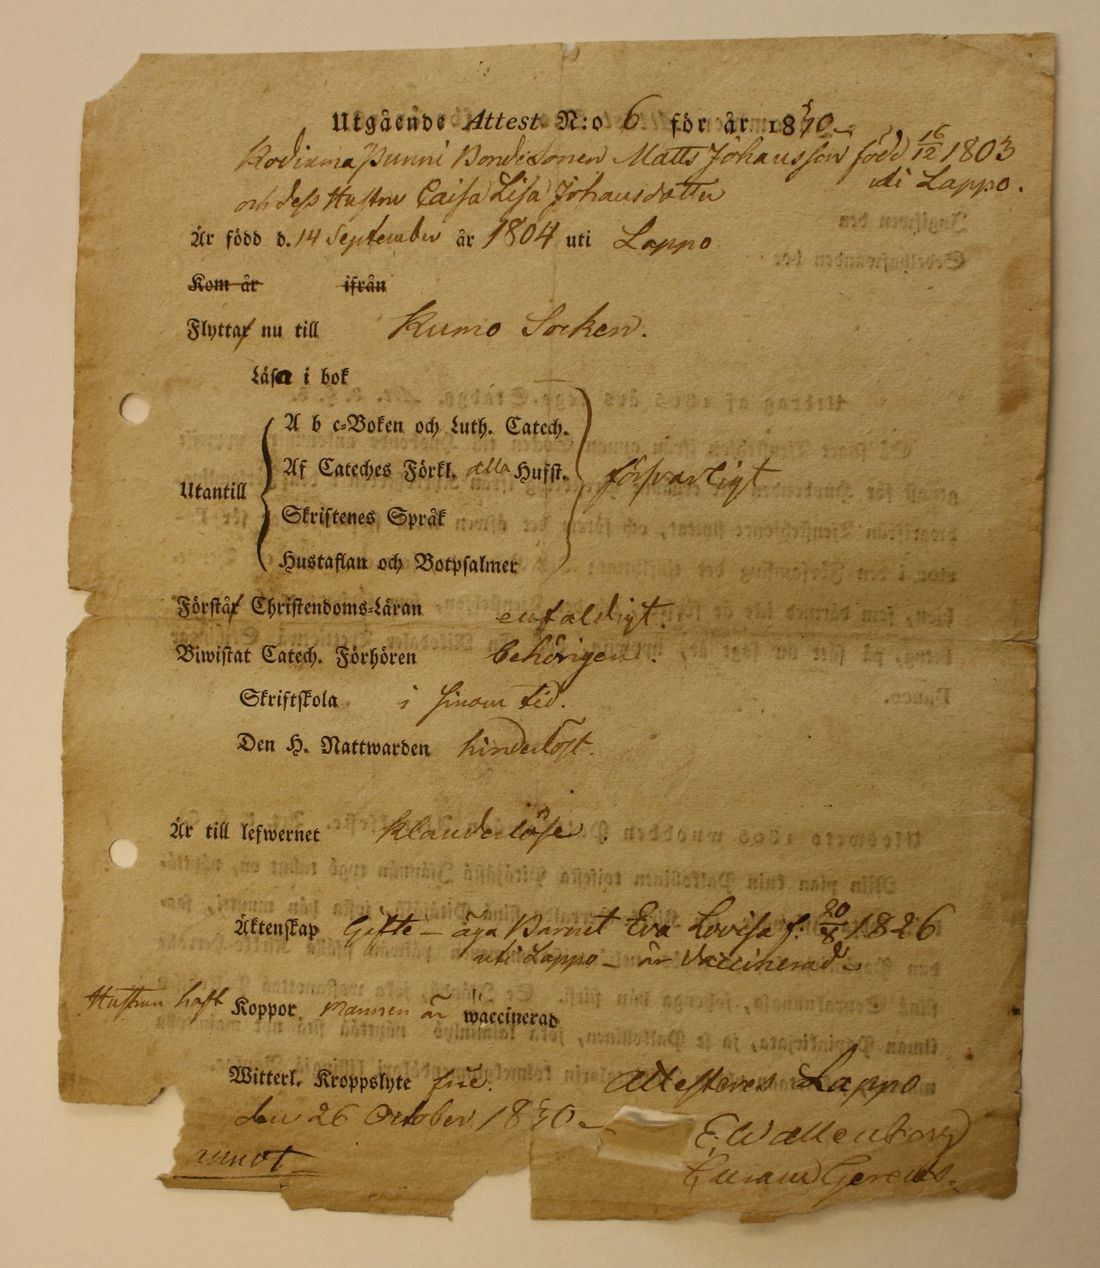 Utgående Attest N:o 6 för år 1830
Bondesonen Matts Johansson född 16/12 1803
uti Lappo.
och dess Hustru Caisa Lisa Johansdotter
Är född d. 14 September år 1804 uti Lappo
Kom år ifrån
Flyttar nu till Kumo Socken.
Läsa i bok
A b c-Boken och Luth. Catech.
Af Cateches Förkl. alla Hufst. försvarligt
Utantill
Skriftenes Språk
Hustaflan och Botpsalmer
Förstår Christendoms-Läran enfaldigt.
Biwistat Catech. Förhören behörigen.
Skriftskola i sinom tid.
Den H. Nattwarden hinderlöst.
Är till lefwernet klanderlöse.
Äktenskap Gifte – äga Barnet Eva Lovisa f: 20/8 1826
uti Lappo – är vaccinerad
Hustrun haft Koppor Mannen är waccinerad
Witterl. Kroppslyte frie. Attesteres Lappo
den 26 October 1830
E. Wallenberg